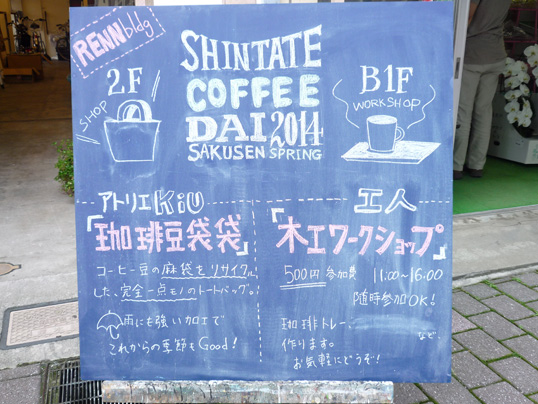 RENN bldg
SHINTATE
COFFEE
DAI 2014
SAKUSEN SPRING
2F
SHOP
B1F
WORKSHOP
アトリエ KiU
「珈琲豆袋袋」
コーヒー豆の麻袋をリサイクル
した、完全一点モノのトートバッグ。
雨にも強い加工で
これからの季節もGood!
工人
「木工ワークショップ」
500円 参加費 11:00~16:00
随時参加OK!
珈琲トレー、など、
作ります。
お気軽にどうぞ!